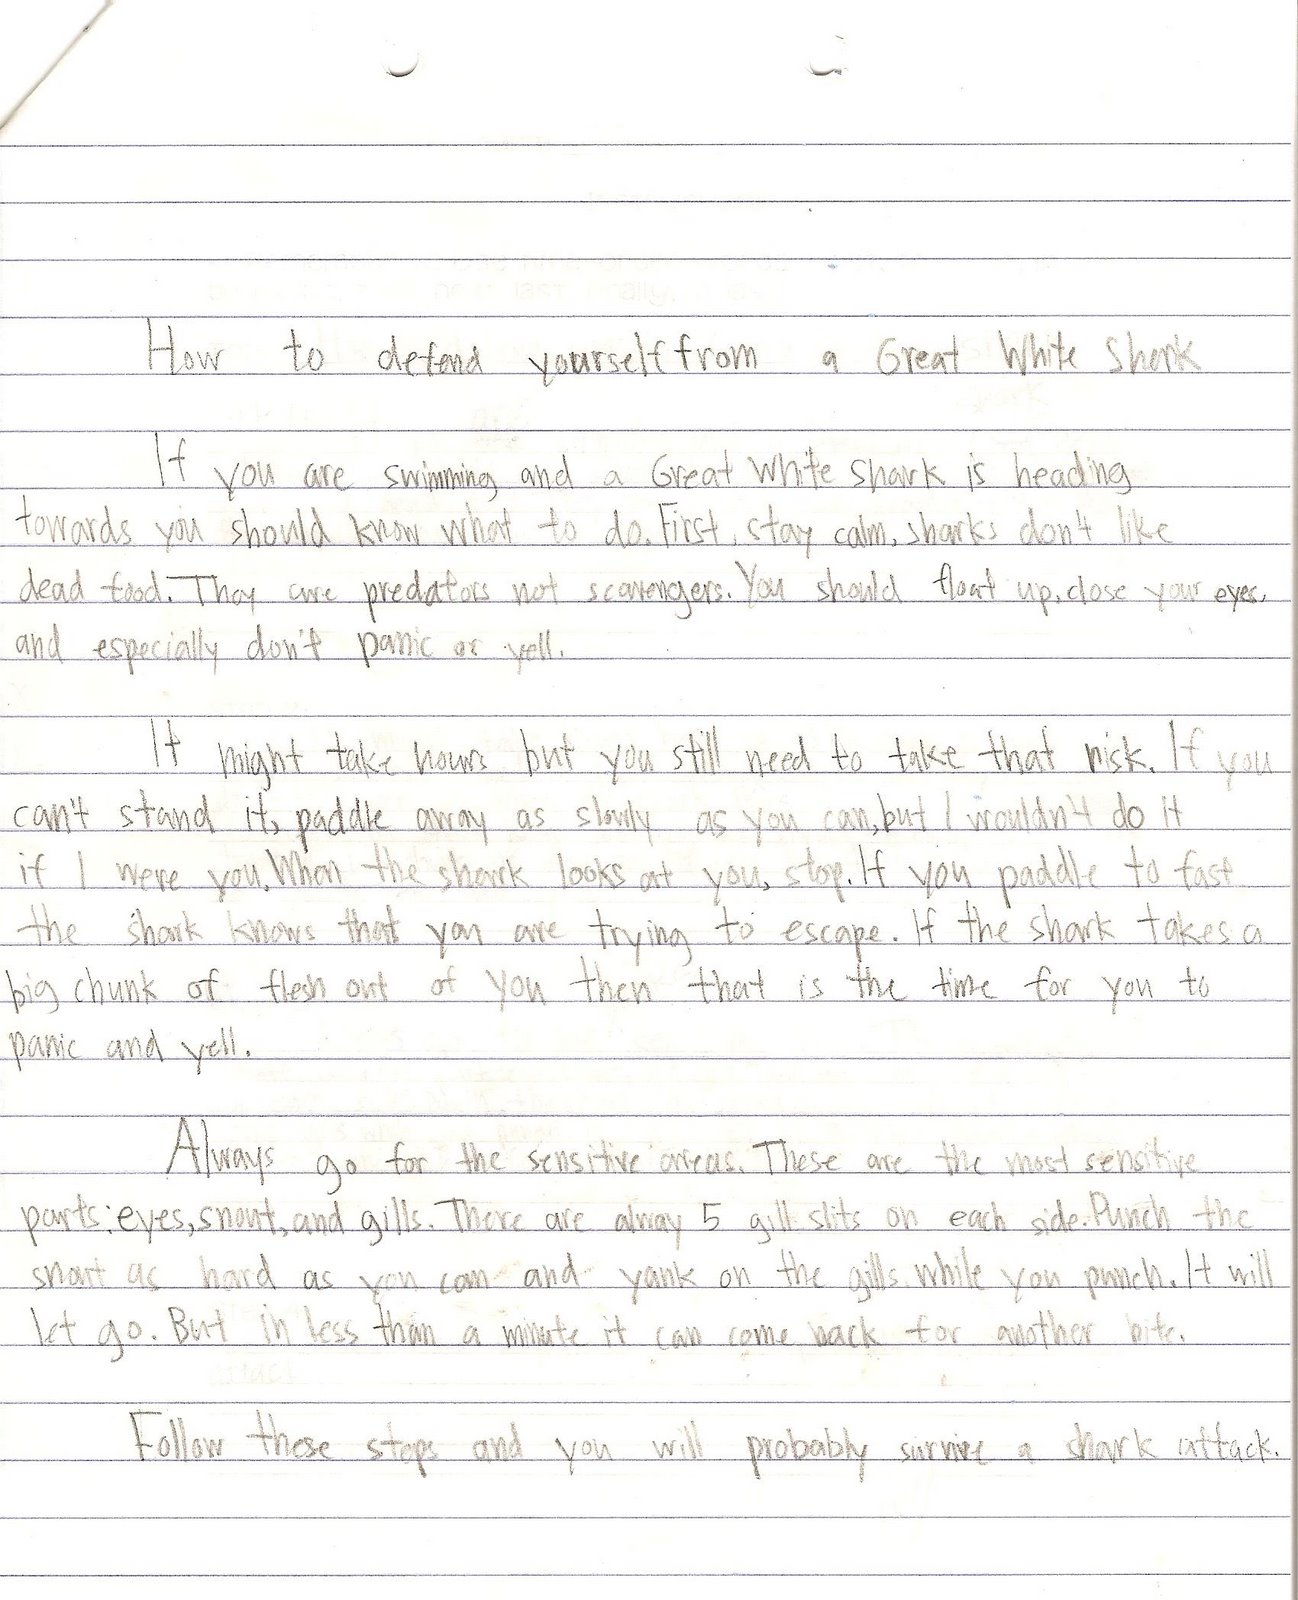 How to defend yourself from a Great White Shark
If you are swimming and a Great White shark is heading
towards you should know what to do. First, stay calm, sharks don't like
dead food. They are predators not scavengers. You should float up, close your eyes,
and especially don't panic or yell.
It might take hours but you still need to take that risk. If you
can't stand it, paddle away as slowly as you can, but I wouldn't do it
if I were you. When the shark looks at you, stop. If you paddle to fast
the shark knows that you are trying to escape. If the shark takes a
big chunk of flesh out of you then that is the time for you to
panic and yell.
Always go for the sensitive areas. These are the most sensitive
parts: eyes, snout, and gills. There are alway 5 gill slits on each side. Punch the
snout as hard as you can and yank on the gills while you punch. It will
let go. But in less than a minute it can come back for another bite.
Follow these steps and you will probably survive a shark attack.